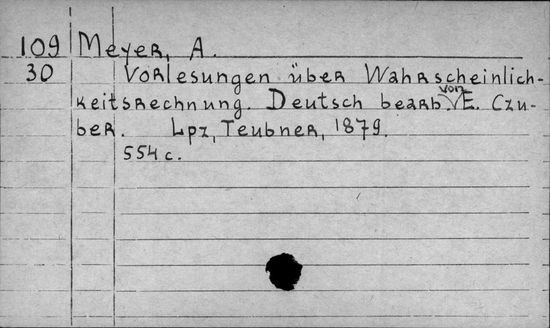 109 Meyer, A.
30 Vorlesungen über Wahrscheinlich-
keitsrechnung. Deutsch bearb. von E. Czu-
ber. Lpz, Teubner, 1879.
554 c.